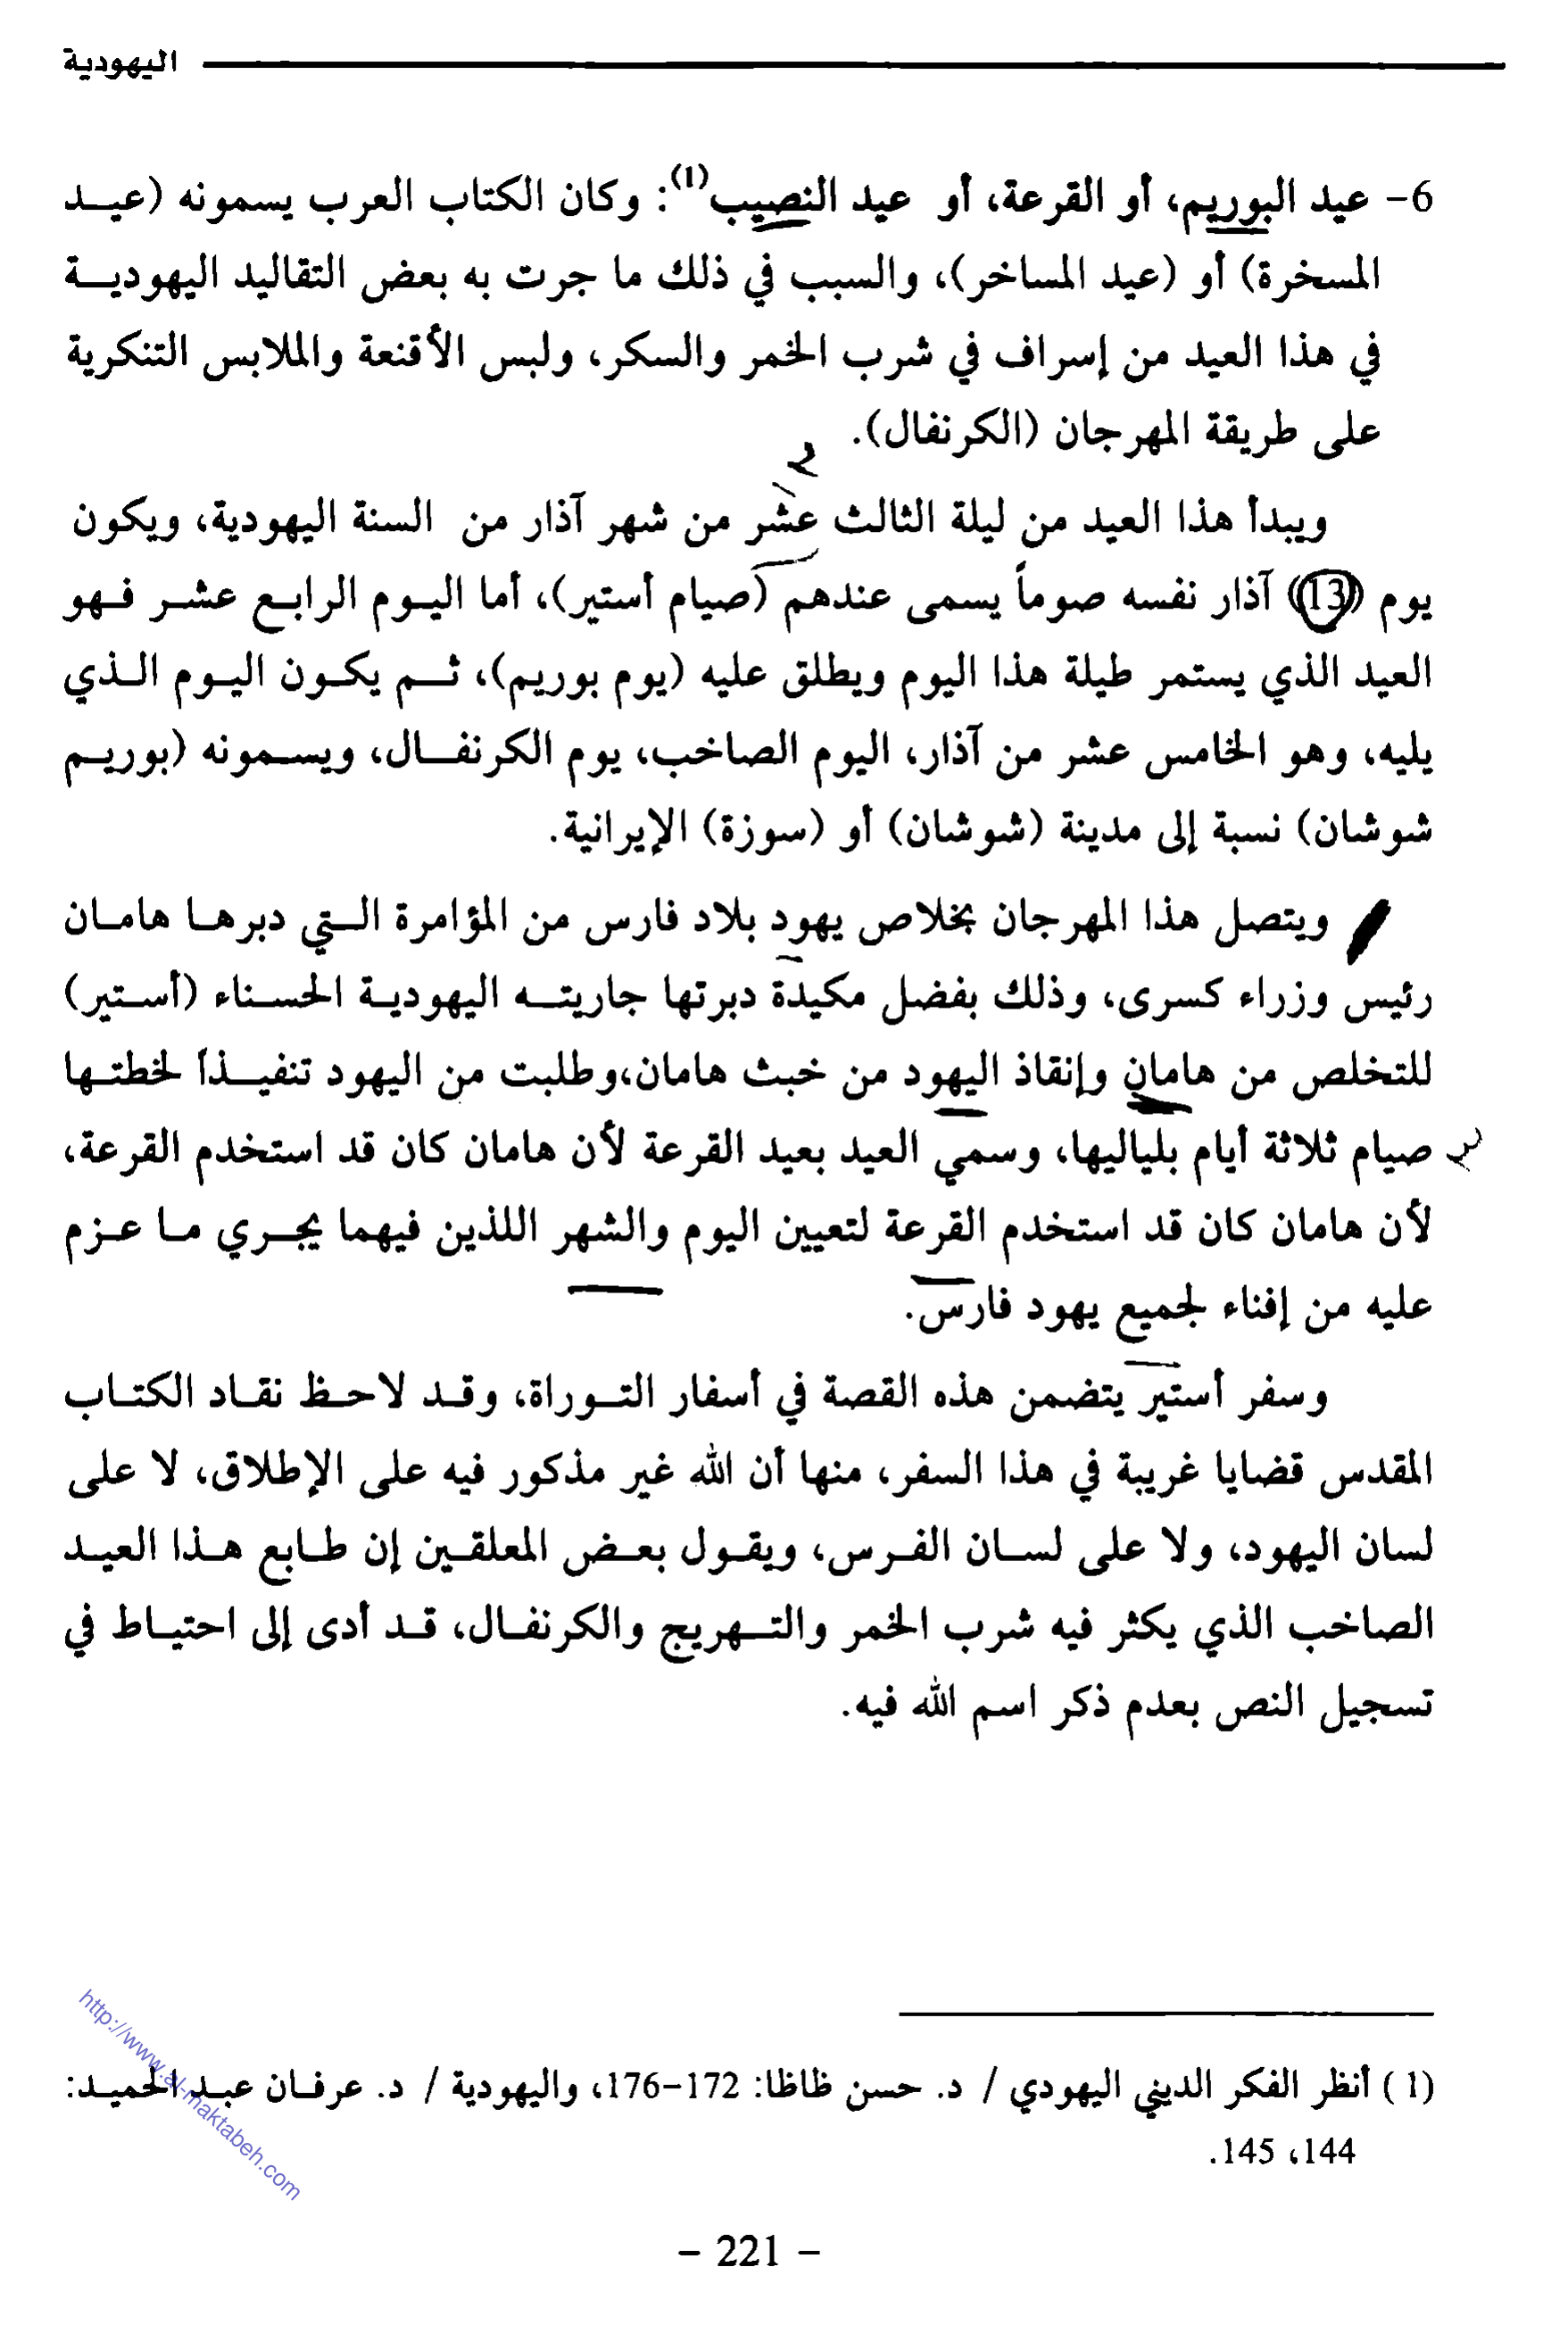 اليهودية
6- عيد البوريم، أو القرعة، أو عيد النصيب(1): وكان الكتاب العرب يسمونه (عيد
المسخرة) أو (عيد المساخر)، والسبب في ذلك ما جرت به بعض التقاليد اليهودية
في هذا العيد من إسراف في شرب الخمر والسكر، ولبس الأقنعة والملابس التنكرية
على طريقة المهرجان (الكرنفال).
ويبدأ هذا العيد من ليلة الثالث عشر من شهر آذار من السنة اليهودية، ويكون
يوم (13) آذار نفسه صوماً يسمى عندهم (صيام أستير)، أما اليوم الرابع عشر فهو
العيد الذي يستمر طيلة هذا اليوم ويطلق عليه (يوم بوريم)، ثم يكون اليوم الذي
يليه، وهو الخامس عشر من آذار، اليوم الصاخب، يوم الكرنفال، ويسمونه (بوريم
شوشان) نسبة إلى مدينة (شوشان) أو (سوزة) الإيرانية.
ويتصل هذا المهرجان بخلاص يهود بلاد فارس من المؤامرة التي دبرها هامان
رئيس وزراء كسرى، وذلك بفضل مكيدة دبرتها جاريته اليهودية الحسناء (أستير)
للتخلص من هامان وإنقاذ اليهود من خبث هامان،وطلبت من اليهود تنفيذاً لخطتها
صيام ثلاثة أيام بلياليها، وسمي العيد بعيد القرعة لأن هامان كان قد استخدم القرعة،
لأن هامان كان قد استخدم القرعة لتعيين اليوم والشهر اللذين فيهما يجري ما عزم
عليه من إفناء لجميع يهود فارس.
وسفر أستير يتضمن هذه القصة في أسفار التوراة، وقد لاحظ نقاد الكتاب
المقدس قضايا غريبة في هذا السفر، منها أن الله غير مذكور فيه على الإطلاق، لا على
لسان اليهود، ولا على لسان الفرس، ويقول بعض المعلقين إن طابع هذا العيد
الصاخب الذي يكثر فيه شرب الخمر والتهريج والكرنفال، قد أدى إلى احتياط في
تسجيل النص بعدم ذكر اسم الله فيه.
(1) أنظر الفكر الديني اليهودي / د. حسن ظاظا: 172-176، واليهودية / د. عرفان عبد الحميد:
144، 145.
- 221 -
http://www.al-maktabeh.com